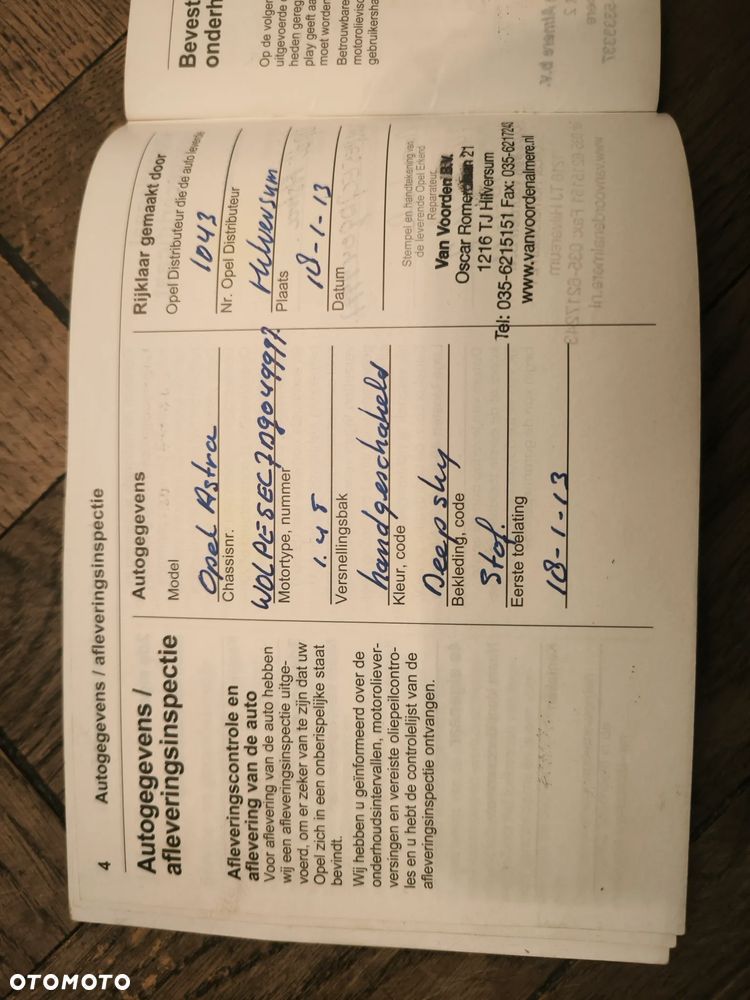 4 Autogegevens / afleveringsinspectie
Autogegevens /
afleveringsinspectie
Afleveringscontrole en
aflevering van de auto
Voor aflevering van de auto hebben
wij een afleveringsinspectie uitge-
voerd, om er zeker van te zijn dat uw
Opel zich in een onberispelijke staat
bevindt.
Wij hebben u geïnformeerd over de
onderhoudsintervallen, motoroliever-
versingen en vereiste oliepeilcontro-
les en u hebt de controlelijst van de
afleveringsinspectie ontvangen.
Autogegevens
Model
Opel Astra
Chassisnr.
Motortype, nummer
1.4T
Versnellingsbak
handgeschakeld
Kleur, code
Deep sky
Bekleding, code
Stof.
Eerste toelating
18-1-13
Rijklaar gemaakt door
Opel Distributeur die de auto leverde
1043
Nr. Opel Distributeur
Hilversum
Plaats
18-1-13
Datum
Stempel en handtekening van
de leverende Opel Erkend
Reparateur.
Van Voorden B.V.
Oscar Romerolaan 21
1216 TJ Hilversum
Tel: 035-6215151 Fax: 035-6217243
www.vanvoordenalmere.nl
Bevest
onderh
Op de volgen
uitgevoerde
heden gereg
play geeft aa
moet worden
Betrouwbare
motorolievisc
gebruikersha
OTOMOTO